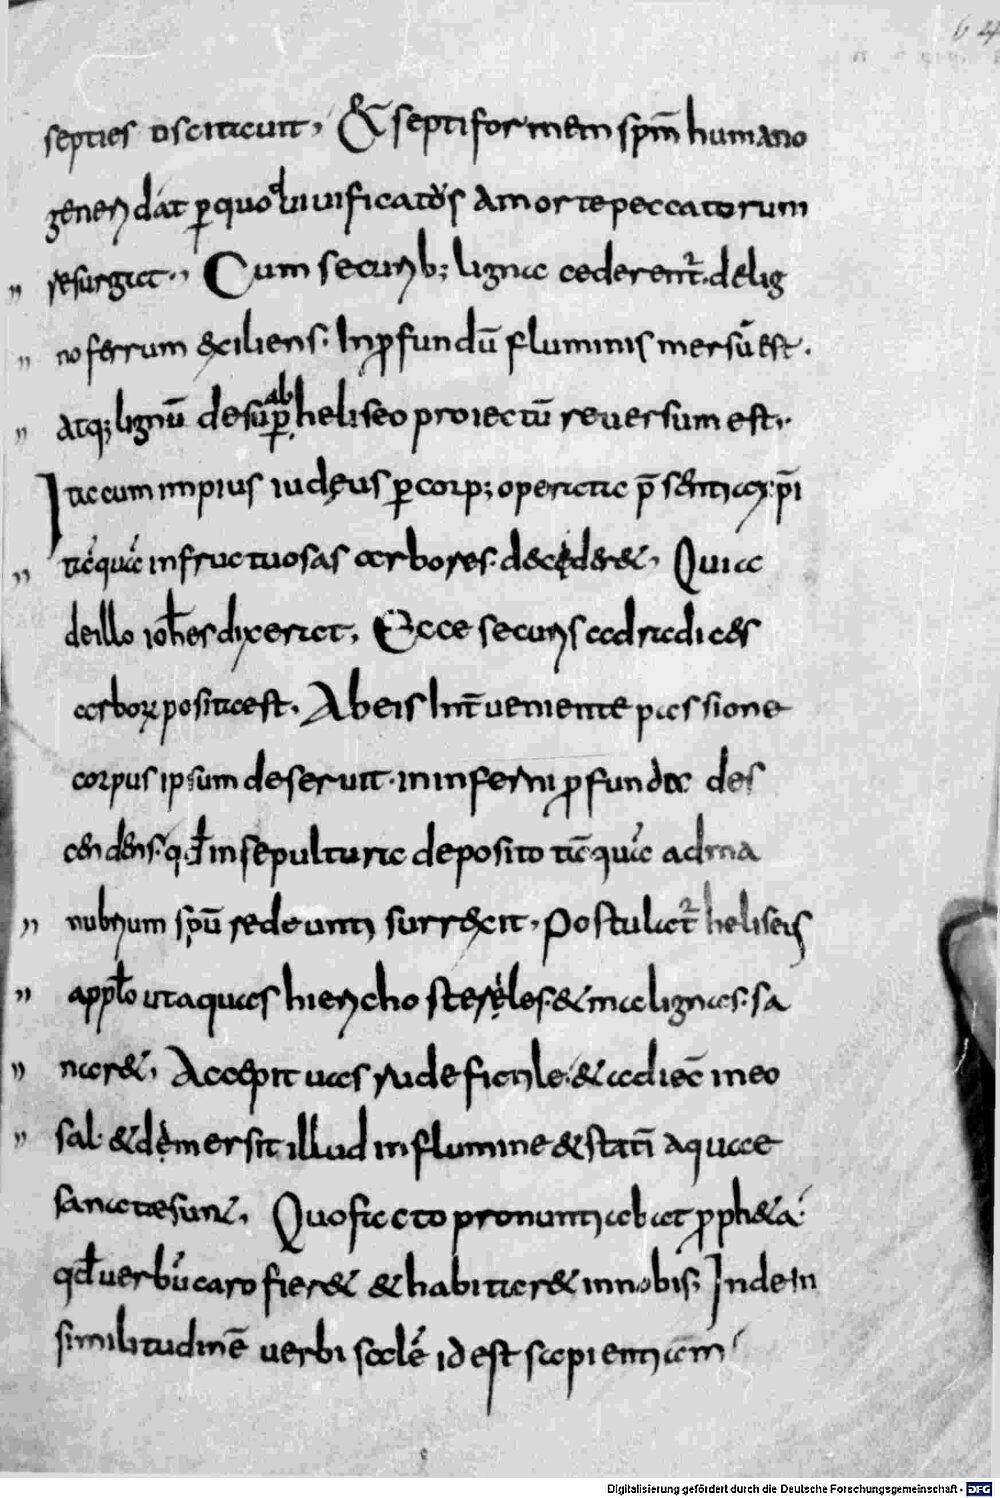 64
septies oscitauit, & septiformem sp̄m humano
generi dat ꝑ quod uiuificatus a morte peccatorum
resurgit. Cum securib; ligna cederent᷑. de lig
no ferrum exiliens. In ꝓfundū fluminis mersū est.
atq; lignū desuꝑ ab heliseo proiectū reuersum est.
Ita cum impius iudęus ꝑ corp; operata p̄sentia xp̄i
tāquā infructuosas arbores. decęderet, Quia
de illo ioh̄es dixerat, Ecce securis ad radices
arboꝝ posita est. Ab eis Int̄ueniente passione
corpus ipsum deseruit. in inferni ꝓfunda des
cendens. qd̄ in sepultura deposito tāquā ad ma
nubrium sp̄u redeunti surrexit, Postulat᷑ heliseus
a pp̄lo ut aquas hiericho steriles. & malignas. sa
naret, Accepit uas rude fictile. & adiec̄ in eo
sal. & demersit illud in flumine & stati̅ aquae
sanctae sunt, Quo facto pronuntiabat ꝓpheta.
qd̄ uerbū caro fieret & habitaret in nobis; Inde in
similitudinē uerbi salē id est sapientiam
Digitalisierung gefördert durch die Deutsche Forschungsgemeinschaft - DFG